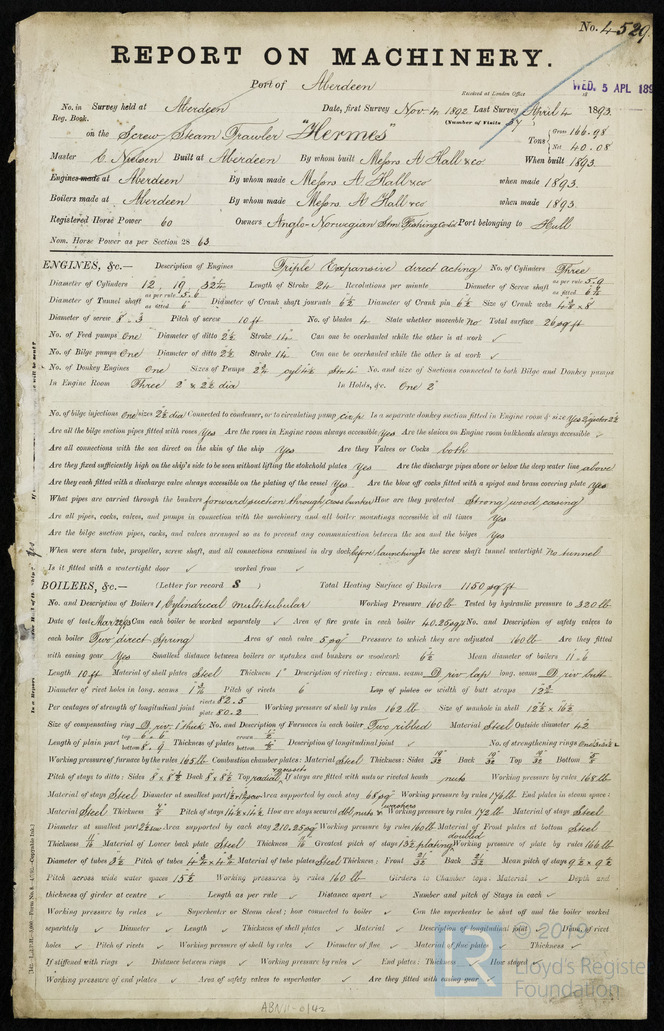 No. 4529.
REPORT ON MACHINERY.
Port of Aberdeen
Received at London Office WED. 5 APL 189
No. in Survey held at Aberdeen Date, first Survey Nov 4 1892 Last Survey April 4 1893.
Reg. Book. (Number of Visits 37)
on the Screw Steam Trawler "Hermes" Tons Gross 166.98 Net 40.08
Master C. Nielsen Built at Aberdeen By whom built Messrs A Hall & co When built 1893.
Engines made at Aberdeen By whom made Messrs A Hall & co when made 1893.
Boilers made at Aberdeen By whom made Messrs. A Hall & co when made 1893
Registered Horse Power 60 Owners Anglo-Norwegian Stm Fishing Co Ld Port belonging to Hull
Nom. Horse Power as per Section 28 63
ENGINES, &c.— Description of Engines Triple Expansive direct acting No. of Cylinders Three
Diameter of Cylinders 12, 19, 32½ Length of Stroke 24 Revolutions per minute Diameter of Screw shaft as per rule 5.9 as fitted 6½
Diameter of Tunnel shaft as per rule 5.6 as fitted 6" Diameter of Crank shaft journals 6½ Diameter of Crank pin 6½ Size of Crank webs 4⅜ x 8"
Diameter of screw 8.3 Pitch of screw 10ft No. of blades 4 State whether moveable no Total surface 26 sq ft
No. of Feed pumps One Diameter of ditto 2½ Stroke 14 Can one be overhauled while the other is at work ✓
No. of Bilge pumps One Diameter of ditto 2½ Stroke 14 Can one be overhauled while the other is at work ✓
No. of Donkey Engines One Sizes of Pumps No. and size of Suctions connected to both Bilge and Donkey pumps
In Engine Room Three 2" & 2½ dia In Holds, &c. One 2"
No. of bilge injections One sizes 2½ dia Connected to condenser, or to circulating pump circ p. Is a separate donkey suction fitted in Engine room & size Yes
Are all the bilge suction pipes fitted with roses Yes Are the roses in Engine room always accessible Yes Are the sluices on Engine room bulkheads always accessible ✓
Are all connections with the sea direct on the skin of the ship Yes Are they Valves or Cocks both
Are they fixed sufficiently high on the ship's side to be seen without lifting the stokehold plates Yes Are the discharge pipes above or below the deep water line above
Are they each fitted with a discharge valve always accessible on the plating of the vessel Yes Are the blow off cocks fitted with a spigot and brass covering plate Yes
What pipes are carried through the bunkers forward suction through cross bunker How are they protected Strong wood casing
Are all pipes, cocks, valves, and pumps in connection with the machinery and all boiler mountings accessible at all times Yes
Are the bilge suction pipes, cocks, and valves arranged so as to prevent any communication between the sea and the bilges Yes
When were stern tube, propeller, screw shaft, and all connections examined in dry dock before launching Is the screw shaft tunnel watertight no tunnel
Is it fitted with a watertight door ✓ worked from ✓
BOILERS, &c.— (Letter for record S) Total Heating Surface of Boilers 1150 sq ft
No. and Description of Boilers 1 Cylindrical multitubular Working Pressure 160 lb Tested by hydraulic pressure to 320 lb
Date of test Can each boiler be worked separately ✓ Area of fire grate in each boiler 40.25 sq ft No. and Description of safety valves to
each boiler Two direct Spring Area of each valve 5 sq" Pressure to which they are adjusted 160 lb Are they fitted
with easing gear Yes Smallest distance between boilers or uptakes and bunkers or woodwork 6½ Mean diameter of boilers 11.6
Length 10 ft Material of shell plates Steel Thickness 1" Description of riveting: circum. seams D riv lap long. seams D riv butt
Diameter of rivet holes in long. seams Pitch of rivets 6" Lap of plates or width of butt straps 12¾
Per centages of strength of longitudinal joint rivets 82.5 plate 80.2 Working pressure of shell by rules 162 lb Size of manhole in shell 12½ x 16½
Size of compensating ring D riv. 1" thick No. and Description of Furnaces in each boiler Two ribbed Material Steel Outside diameter 42
Length of plain part top 6.6 bottom 8.9 Thickness of plates crown ½ bottom ½ Description of longitudinal joint ✓ No. of strengthening rings
Working pressure of furnace by the rules 165 lb Combustion chamber plates: Material Steel Thickness: Sides 19/32 Back 19/32 Top 19/32 Bottom
Pitch of stays to ditto: Sides 8 x 8½ Back 8 x 8½ Top radial If stays are fitted with nuts or riveted heads nuts Working pressure by rules 168 lb
Material of stays Steel Diameter at smallest part Area supported by each stay 68 sq" Working pressure by rules 176 lb End plates in steam space:
Material Steel Thickness Pitch of stays 14½ x 14½ How are stays secured dbl nuts & washers Working pressure by rules 172 lb Material of stays Steel
Diameter at smallest part Area supported by each stay 210.25 sq" Working pressure by rules 160 lb Material of Front plates at bottom Steel
Thickness Material of Lower back plate Steel Thickness Greatest pitch of stays 13½ doubled plating Working pressure of plate by rules 166 lb
Diameter of tubes 3½ Pitch of tubes 4¾ x 4¾ Material of tube plates Steel Thickness: Front Back Mean pitch of stays 9½ x 9½
Pitch across wide water spaces 15½ Working pressures by rules 160 lb Girders to Chamber tops: Material ✓ Depth and
thickness of girder at centre ✓ Length as per rule ✓ Distance apart ✓ Number and pitch of Stays in each ✓
Working pressure by rules ✓ Superheater or Steam chest; how connected to boiler ✓ Can the superheater be shut off and the boiler worked
separately ✓ Diameter ✓ Length ✓ Thickness of shell plates ✓ Material ✓ Description of longitudinal joint ✓ Diam. of rivet
holes ✓ Pitch of rivets ✓ Working pressure of shell by rules ✓ Diameter of flue ✓ Material of flue plates ✓ Thickness ✓
If stiffened with rings ✓ Distance between rings ✓ Working pressure by rules ✓ End plates: Thickness ✓ How stayed ✓
Working pressure of end plates ✓ Area of safety valves to superheater ✓ Are they fitted with easing gear ✓
ABN11-0142
© 2019
Lloyd's Register
Foundation